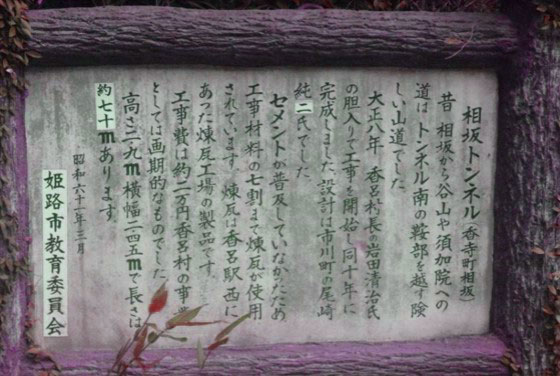 相坂トンネル(香寺町相坂)
昔 相坂から谷山や須加院への
道は トンネル南の鞍部を越す険
しい山道でした
大正八年 香呂村長 岩田清治氏
の胆入りで工事を開始し同十年に
完成しました。設計は市川町の尾崎
純二氏でした
セメントが普及していなかったため
工事材料の七割まで煉瓦が使用
されています。煉瓦は香呂駅西に
あった煉瓦工場の製品です。
工事費は約二万円香呂村の事
としては画期的なものでした
高さ二.九m横幅二.四五mで長さは
約七十mあります。
昭和六十一年三月
姫路市教育委員会